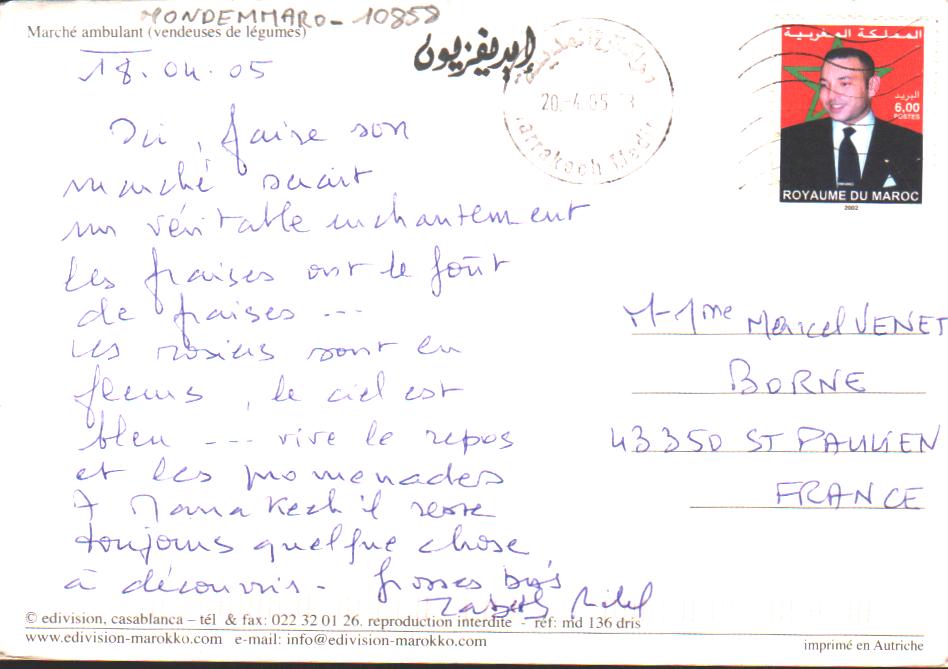 MONDEMMARO - 10858
Marché ambulant (vendeuses de légumes)
18.04.05
Ici, faire son
marché serait
un véritable enchantement
les fraises ont le goût
de fraises ...
Les rosiers sont en
fleurs, le ciel est
bleu --- vive le repos
et les promenades
A Marrakech il reste
toujours quelque chose
à découvrir - grosses bises
إيديفزيون
20-4.05
Marrakech Medi
المملكة المغربية
البريد
6,00
POSTES
ROYAUME DU MAROC
2002
M-Mme Marcel VENET
BORNE
43350 ST PAULIEN
FRANCE
© edivision, casablanca – tél & fax: 022 32 01 26. reproduction interdite - réf: md 136 dris
www.edivision-marokko.com e-mail: info@edivision-marokko.com
imprimé en Autriche